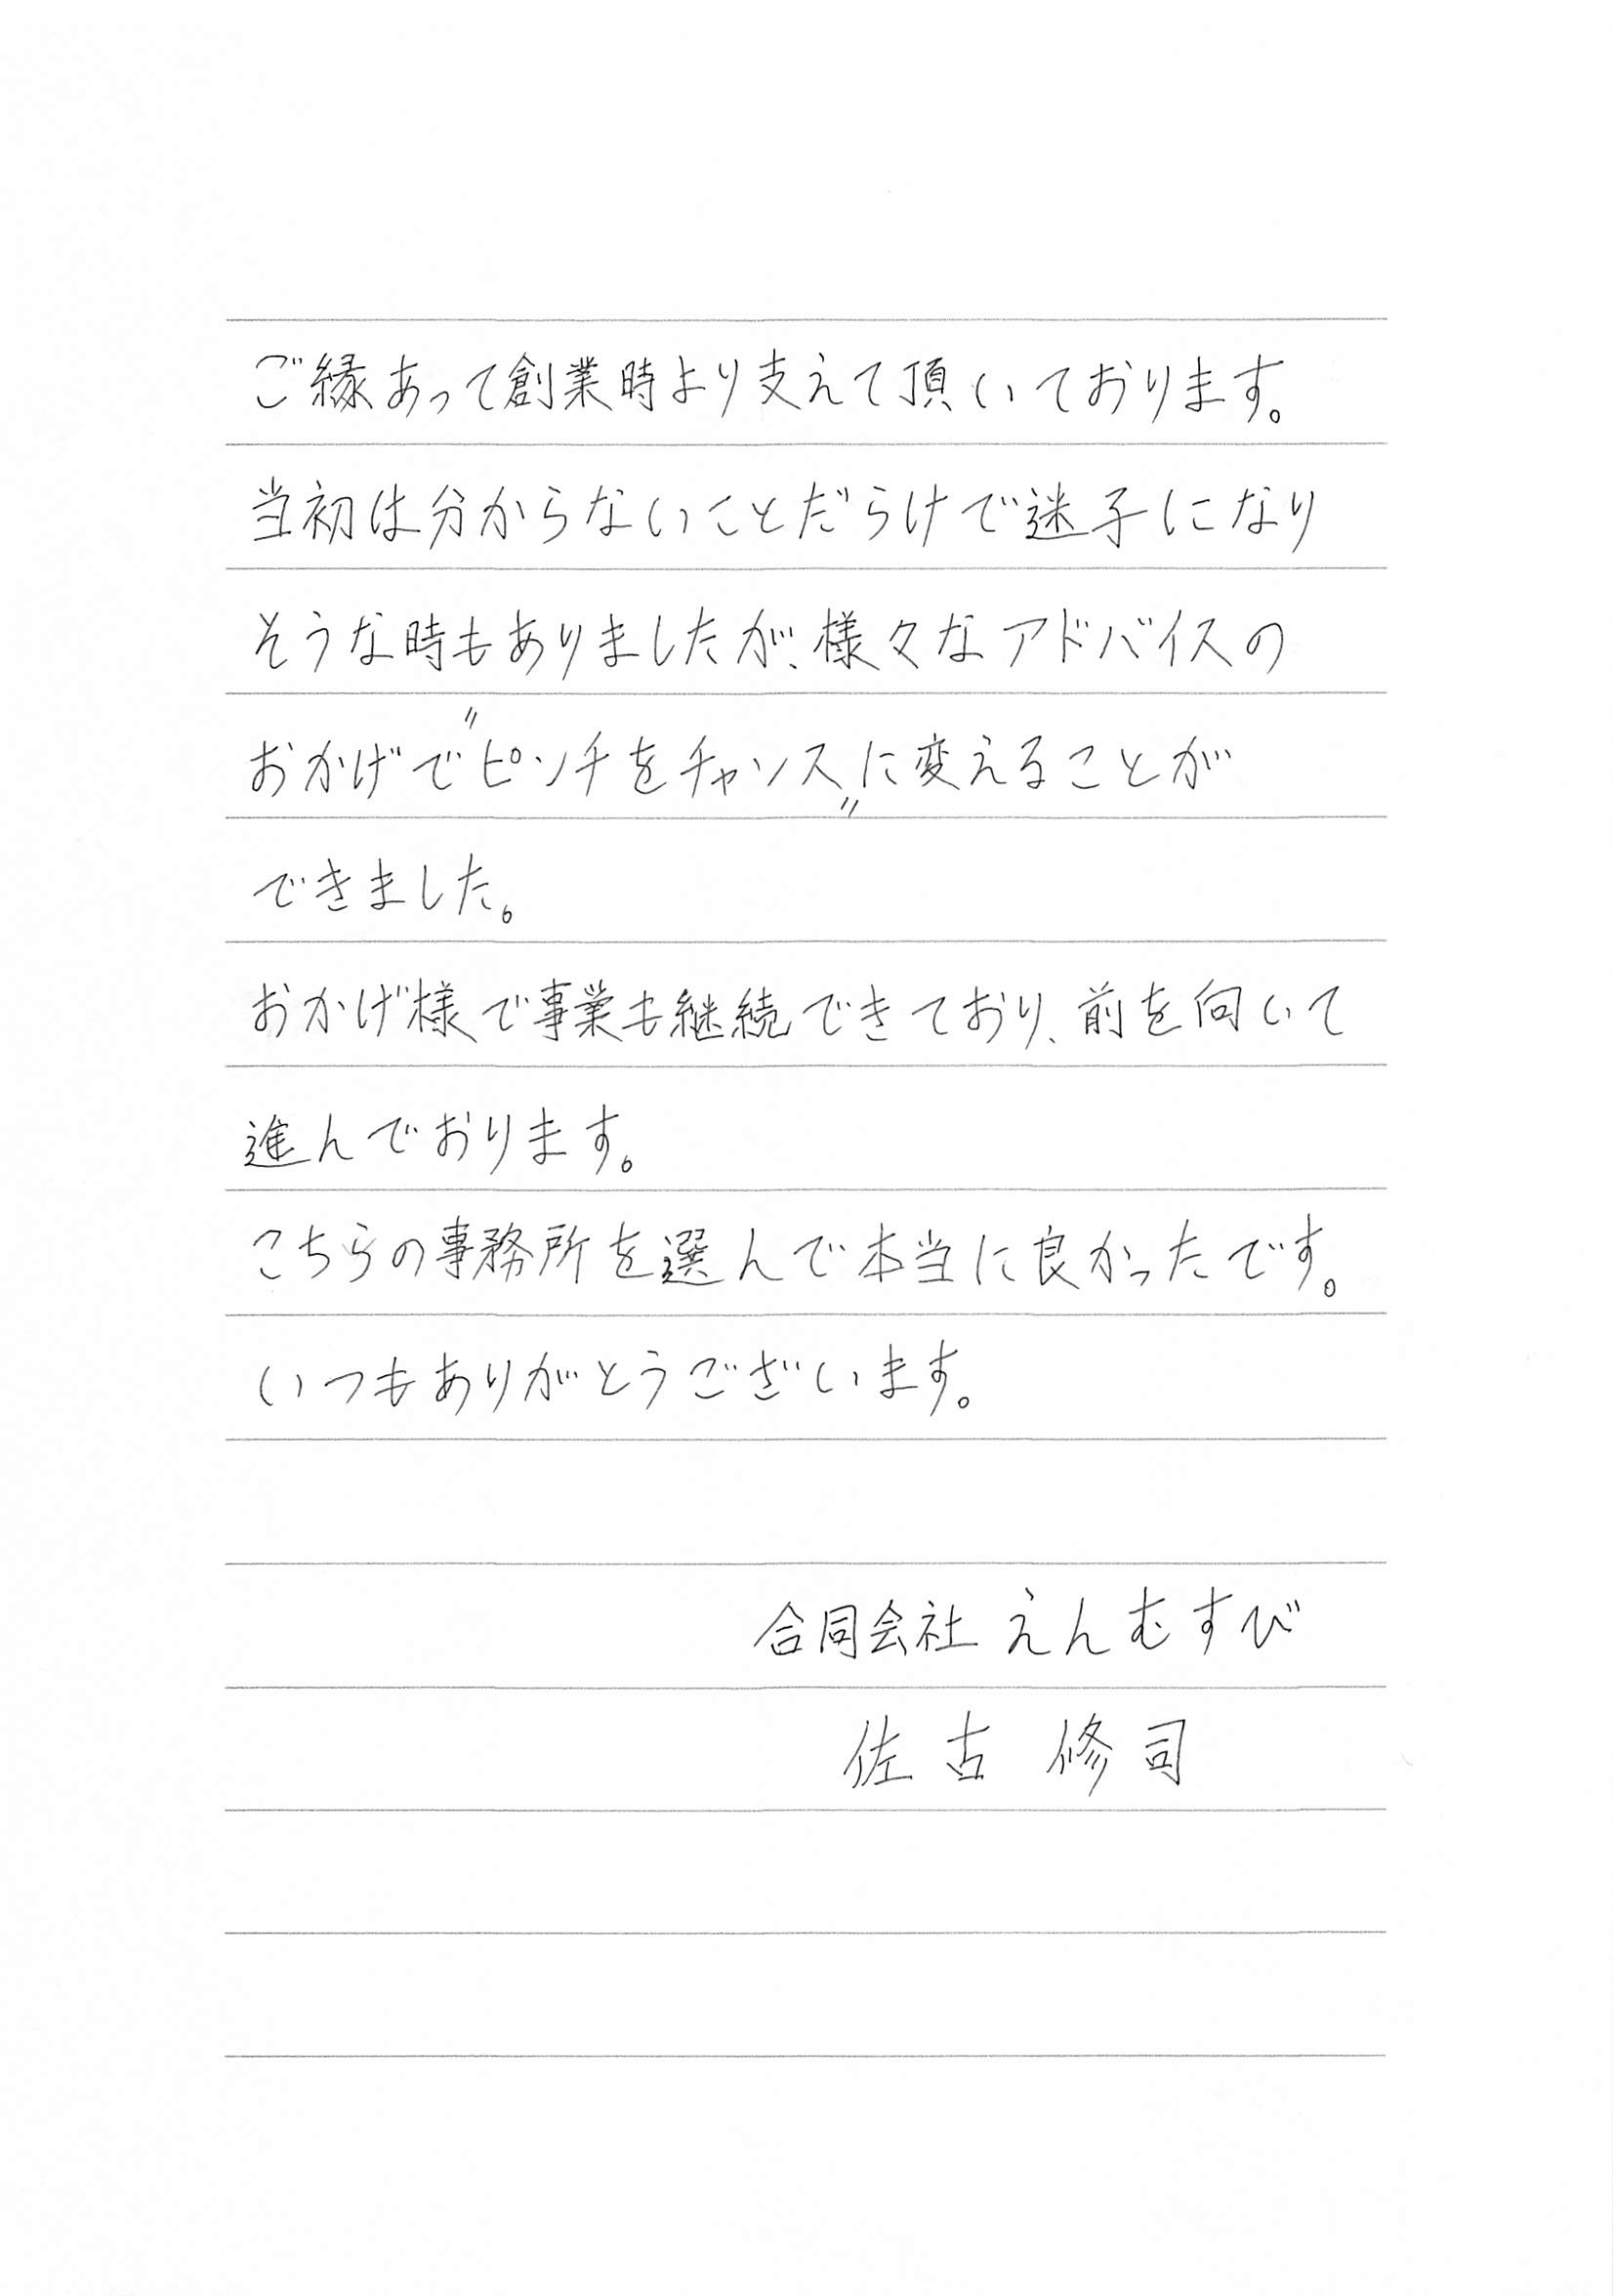 ご縁あって創業時より支えて頂いております。
当初は分からないことだらけで迷子になり
そうな時もありましたが、様々なアドバイスの
おかげで〝ピンチをチャンス〟に変えることが
できました。
おかげ様で事業も継続できており、前を向いて
進んでおります。
こちらの事務所を選んで本当に良かったです。
いつもありがとうございます。
合同会社 えんむすび
佐古 修司